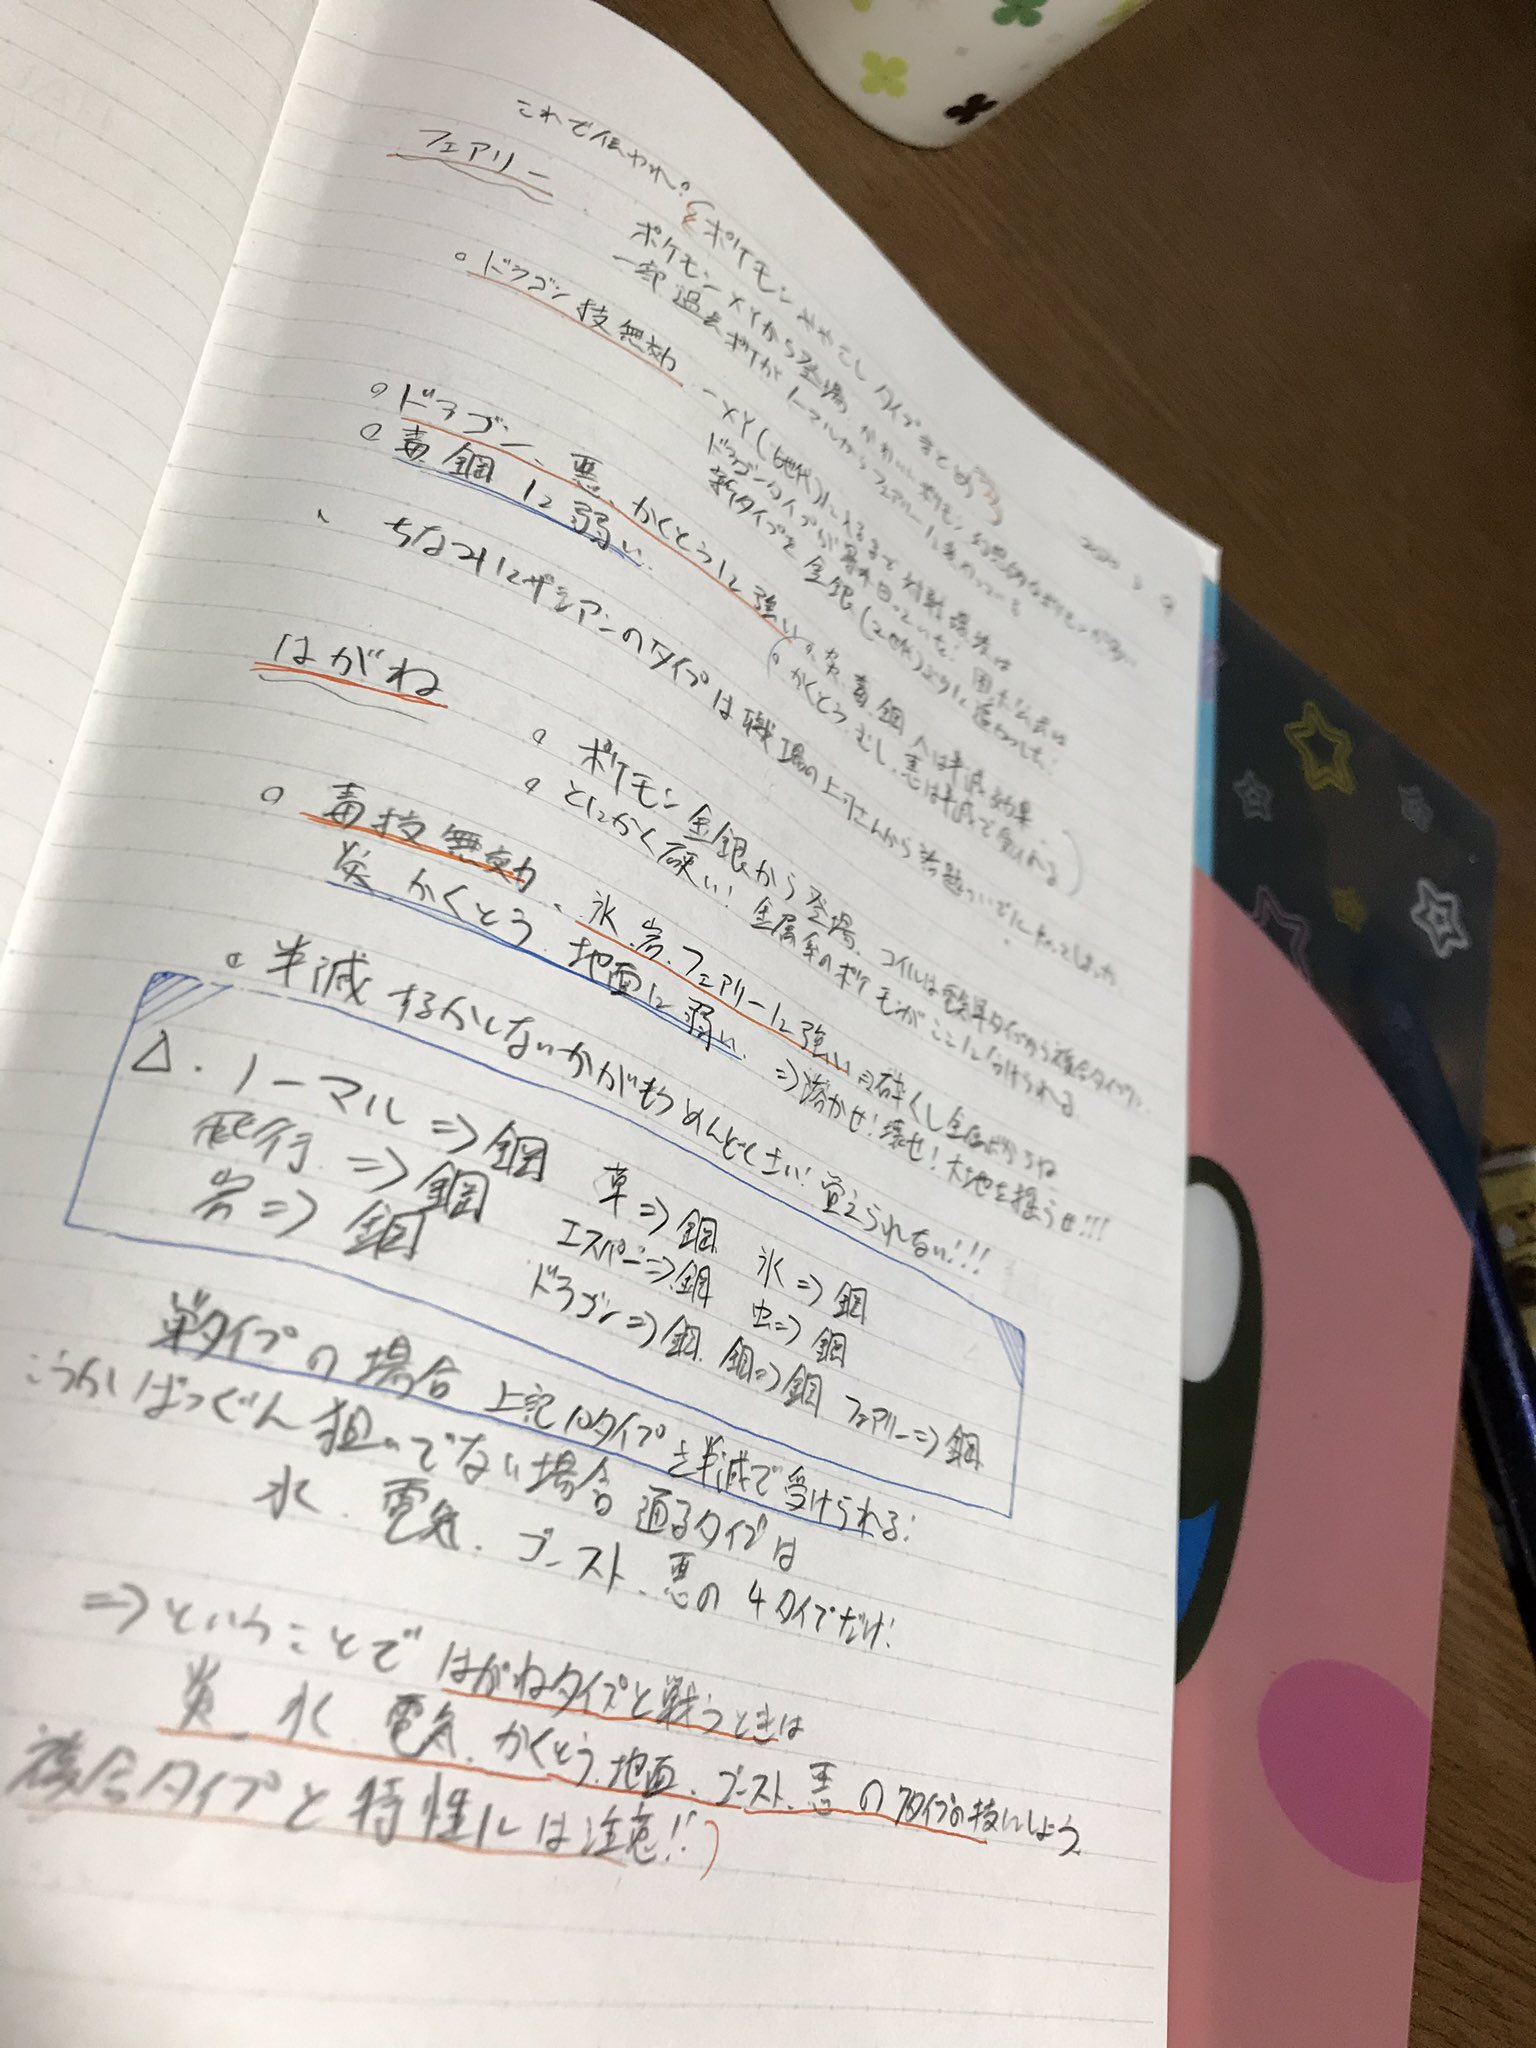 2020 3 9
これで伝われ! ポケモンややこしタイプまとめ
フェアリー
ポケモンXYから登場、かわいいポケモン、幻想的なポケモンが多い
一部過去ポケがノーマルからフェアリーに変わっている
。ドラゴン技無効 - XY(6世代)に入るまで対戦環境は
ドラゴンタイプが暴れ回っていた! 困った公式は
新タイプを金銀(2世代)ぶりに追加した!
。ドラゴン、悪、かくとうに強い
。毒、鋼に弱い
(。炎、毒、鋼へは半減効果
。かくとう、むし、悪は半減で受けれる)
、ちなみにザシアンのタイプは職場の上司さんから話題ついでに
はがね
。ポケモン金銀から登場、コイルは電気単タイプから複合タイプに
。とにかく硬い! 金属系のポケモンがここに分けられる
。毒技無効、氷、岩、フェアリーに強い ⇒砕くし金属だからね
炎、かくとう、地面に弱い ⇒溶かせ!壊せ!大地を揺らせ!!!
。半減するかしないかがもうめんどくさい!覚えられない!!!
△. ノーマル⇒鋼 草⇒鋼 氷⇒鋼
飛行⇒鋼 エスパー⇒鋼 虫⇒鋼
岩⇒鋼 ドラゴン⇒鋼 鋼⇒鋼 フェアリー⇒鋼
単タイプの場合 上記10タイプを半減で受けられる!
こうかばつぐん狙いでない場合 通るタイプは
水、電気、ゴースト、悪の4タイプだけ!
⇒ということで はがねタイプと戦うときは
炎、水、電気、かくとう、地面、ゴースト、悪の7タイプの技にしよう
複合タイプと特性には注意!!)